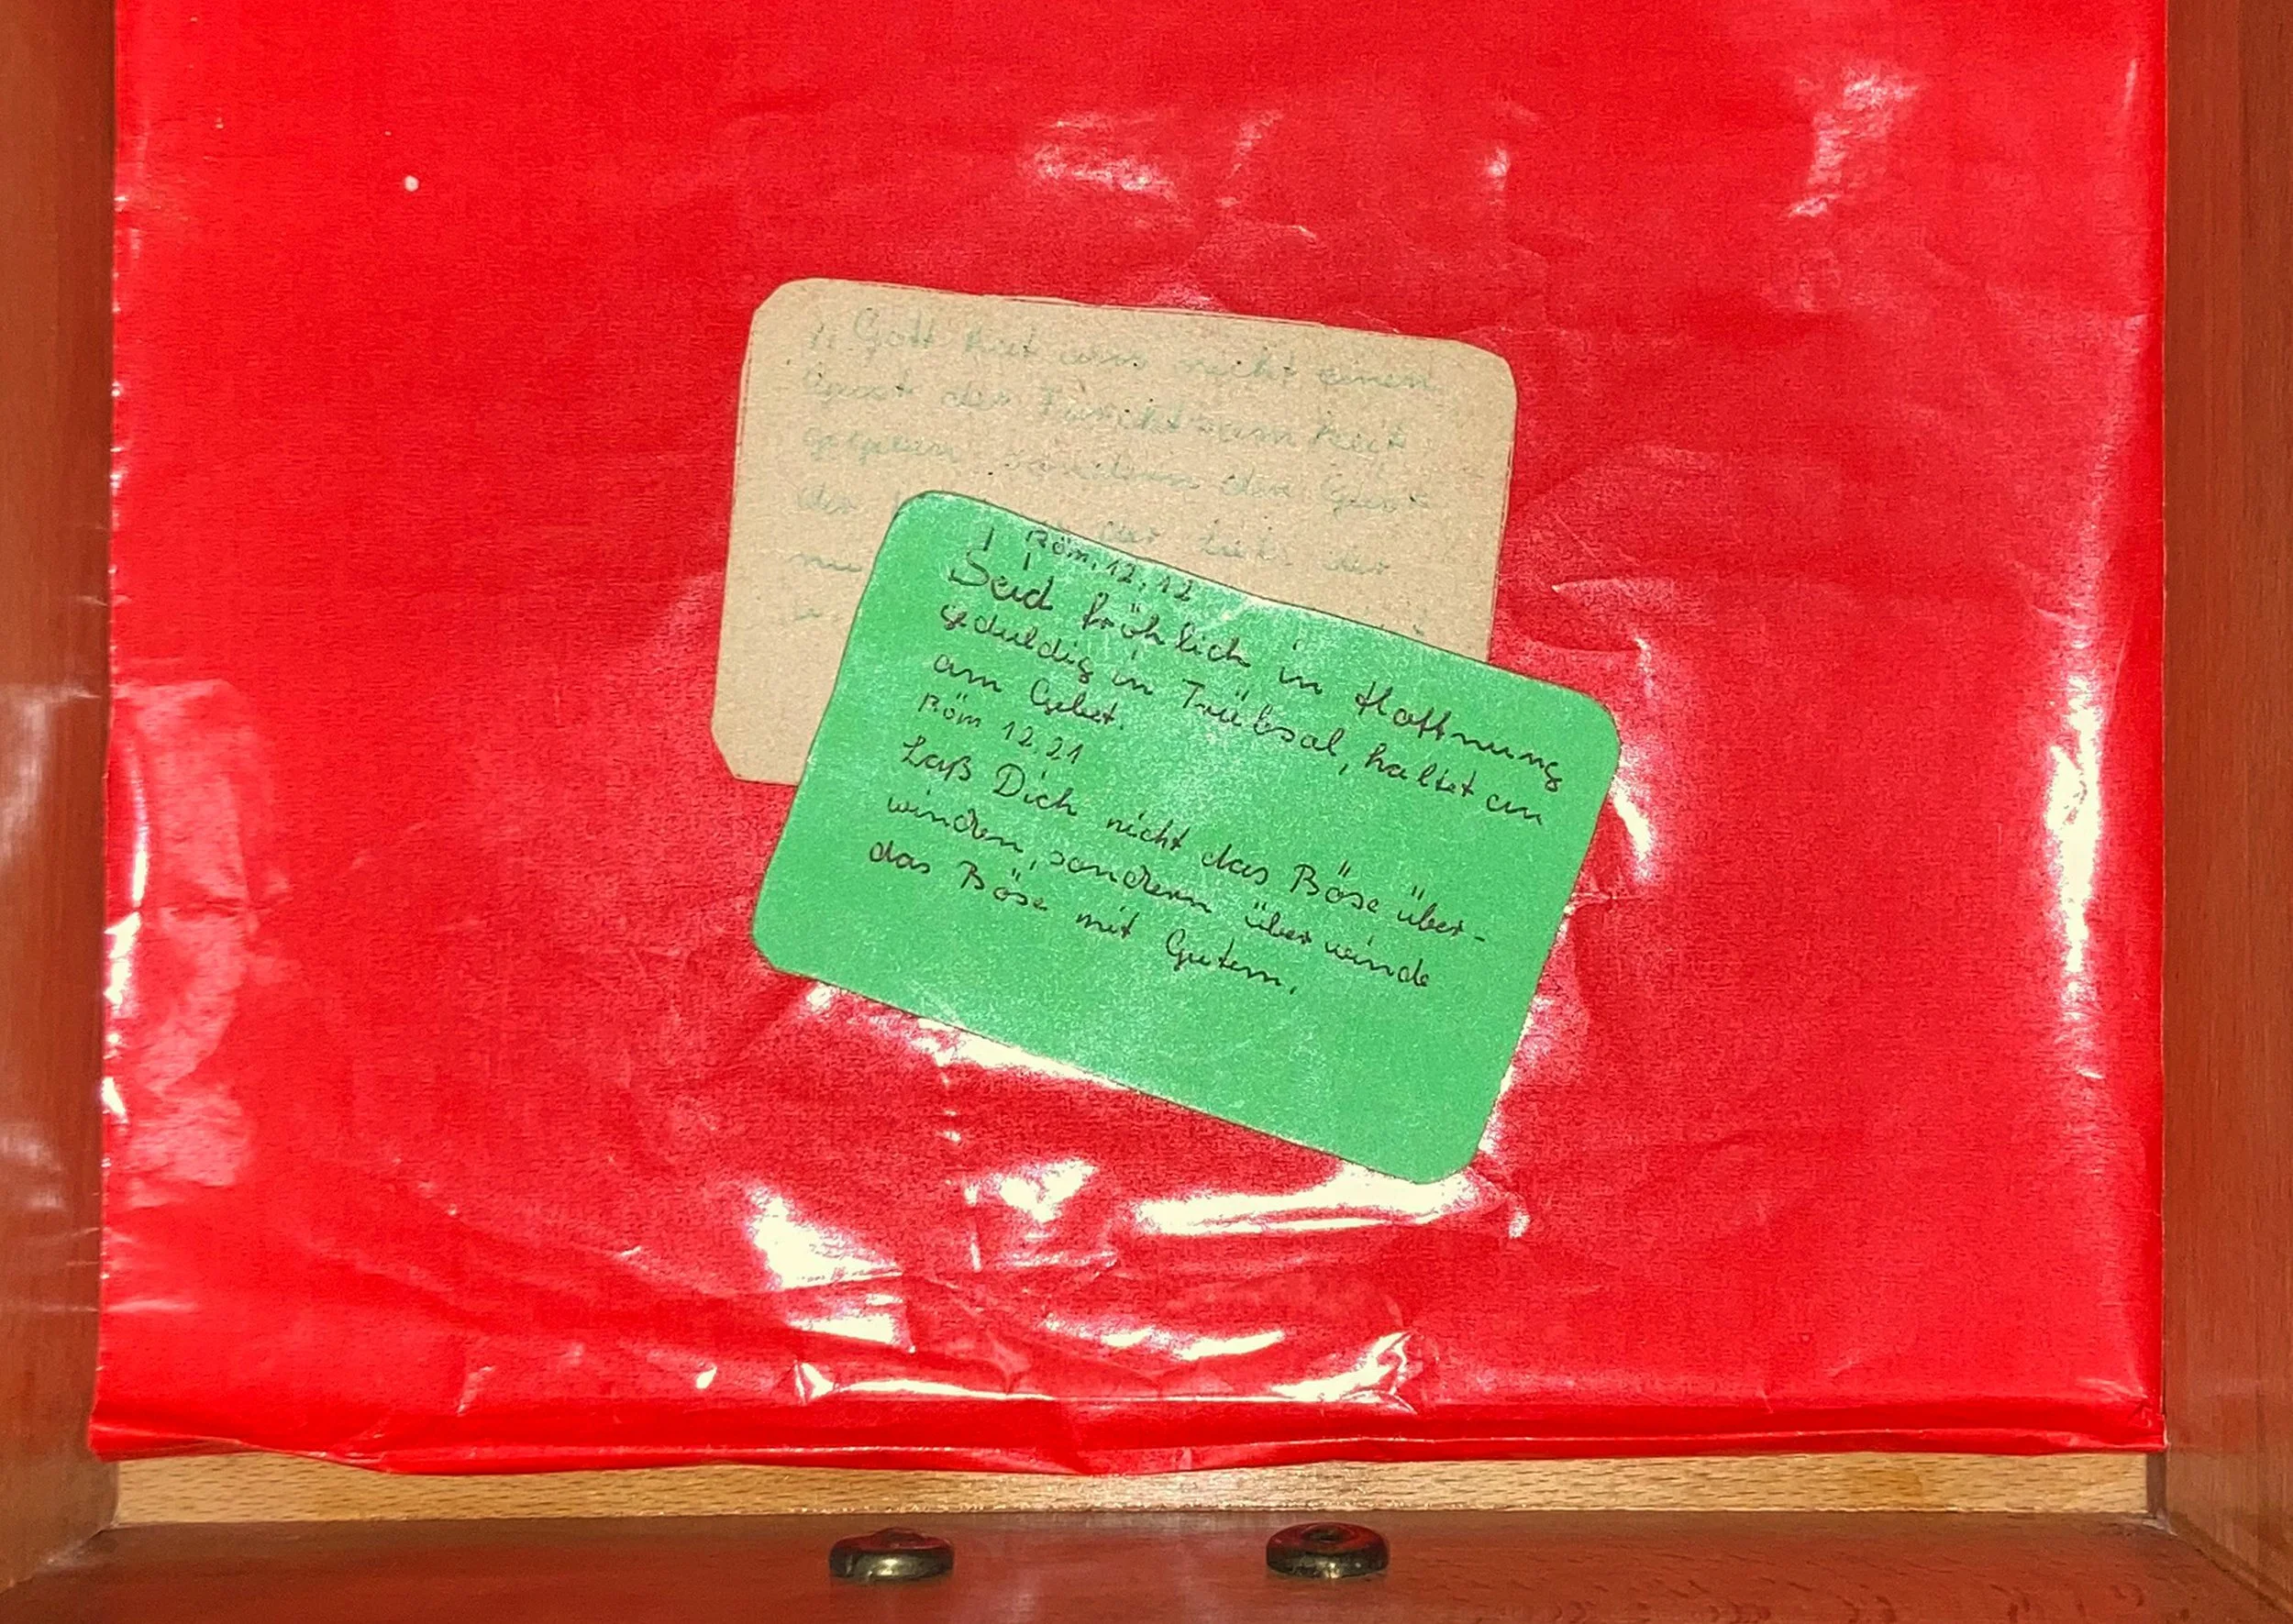 1, Gott hat uns nicht einen
Geist der Furchtsamkeit
gegeben, sondern den Geist
der der Lieb. der
Röm. 12, 12
Seid fröhlich in Hoffnung
geduldig in Trübsal, haltet an
am Gebet.
Röm 12,21
Laß Dich nicht das Böse über-
winden, sondern überwinde
das Böse mit Gutem.